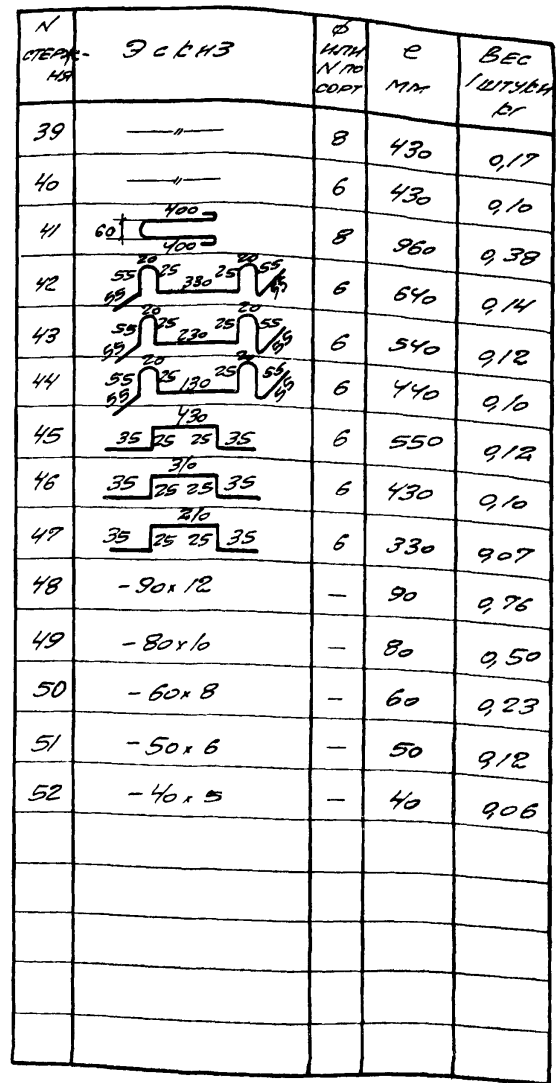 N СТЕРЖ-НЯ ЭСКИЗ Ф ИЛИ N ПО СОРТ ℓ ММ ВЕС 1 ШТУКИ КГ
39 —〃— 8 430 0,17
40 —〃— 6 430 0,10
41 60 400 400 8 960 0,38
42 55 55 20 25 330 25 20 55 55 6 640 0,14
43 55 55 20 25 230 25 20 55 55 6 540 0,12
44 55 55 20 25 130 25 20 55 55 6 440 0,10
45 35 25 430 25 35 6 550 0,12
46 35 25 310 25 35 6 430 0,10
47 35 25 210 25 35 6 330 0,07
48 -90x12 — 90 0,76
49 -80x10 — 80 0,50
50 -60x8 — 60 0,23
51 -50x6 — 50 0,12
52 -40x5 — 40 0,06